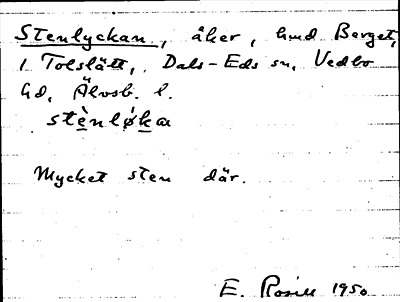 Stenlyckan, åker, hmd Berget,
i Tolslätt, Dals-Eds sn, Vedbo
hd, Älvsb. l.
stènlø̀ka
Mycket sten där.
E. Rosell 1950